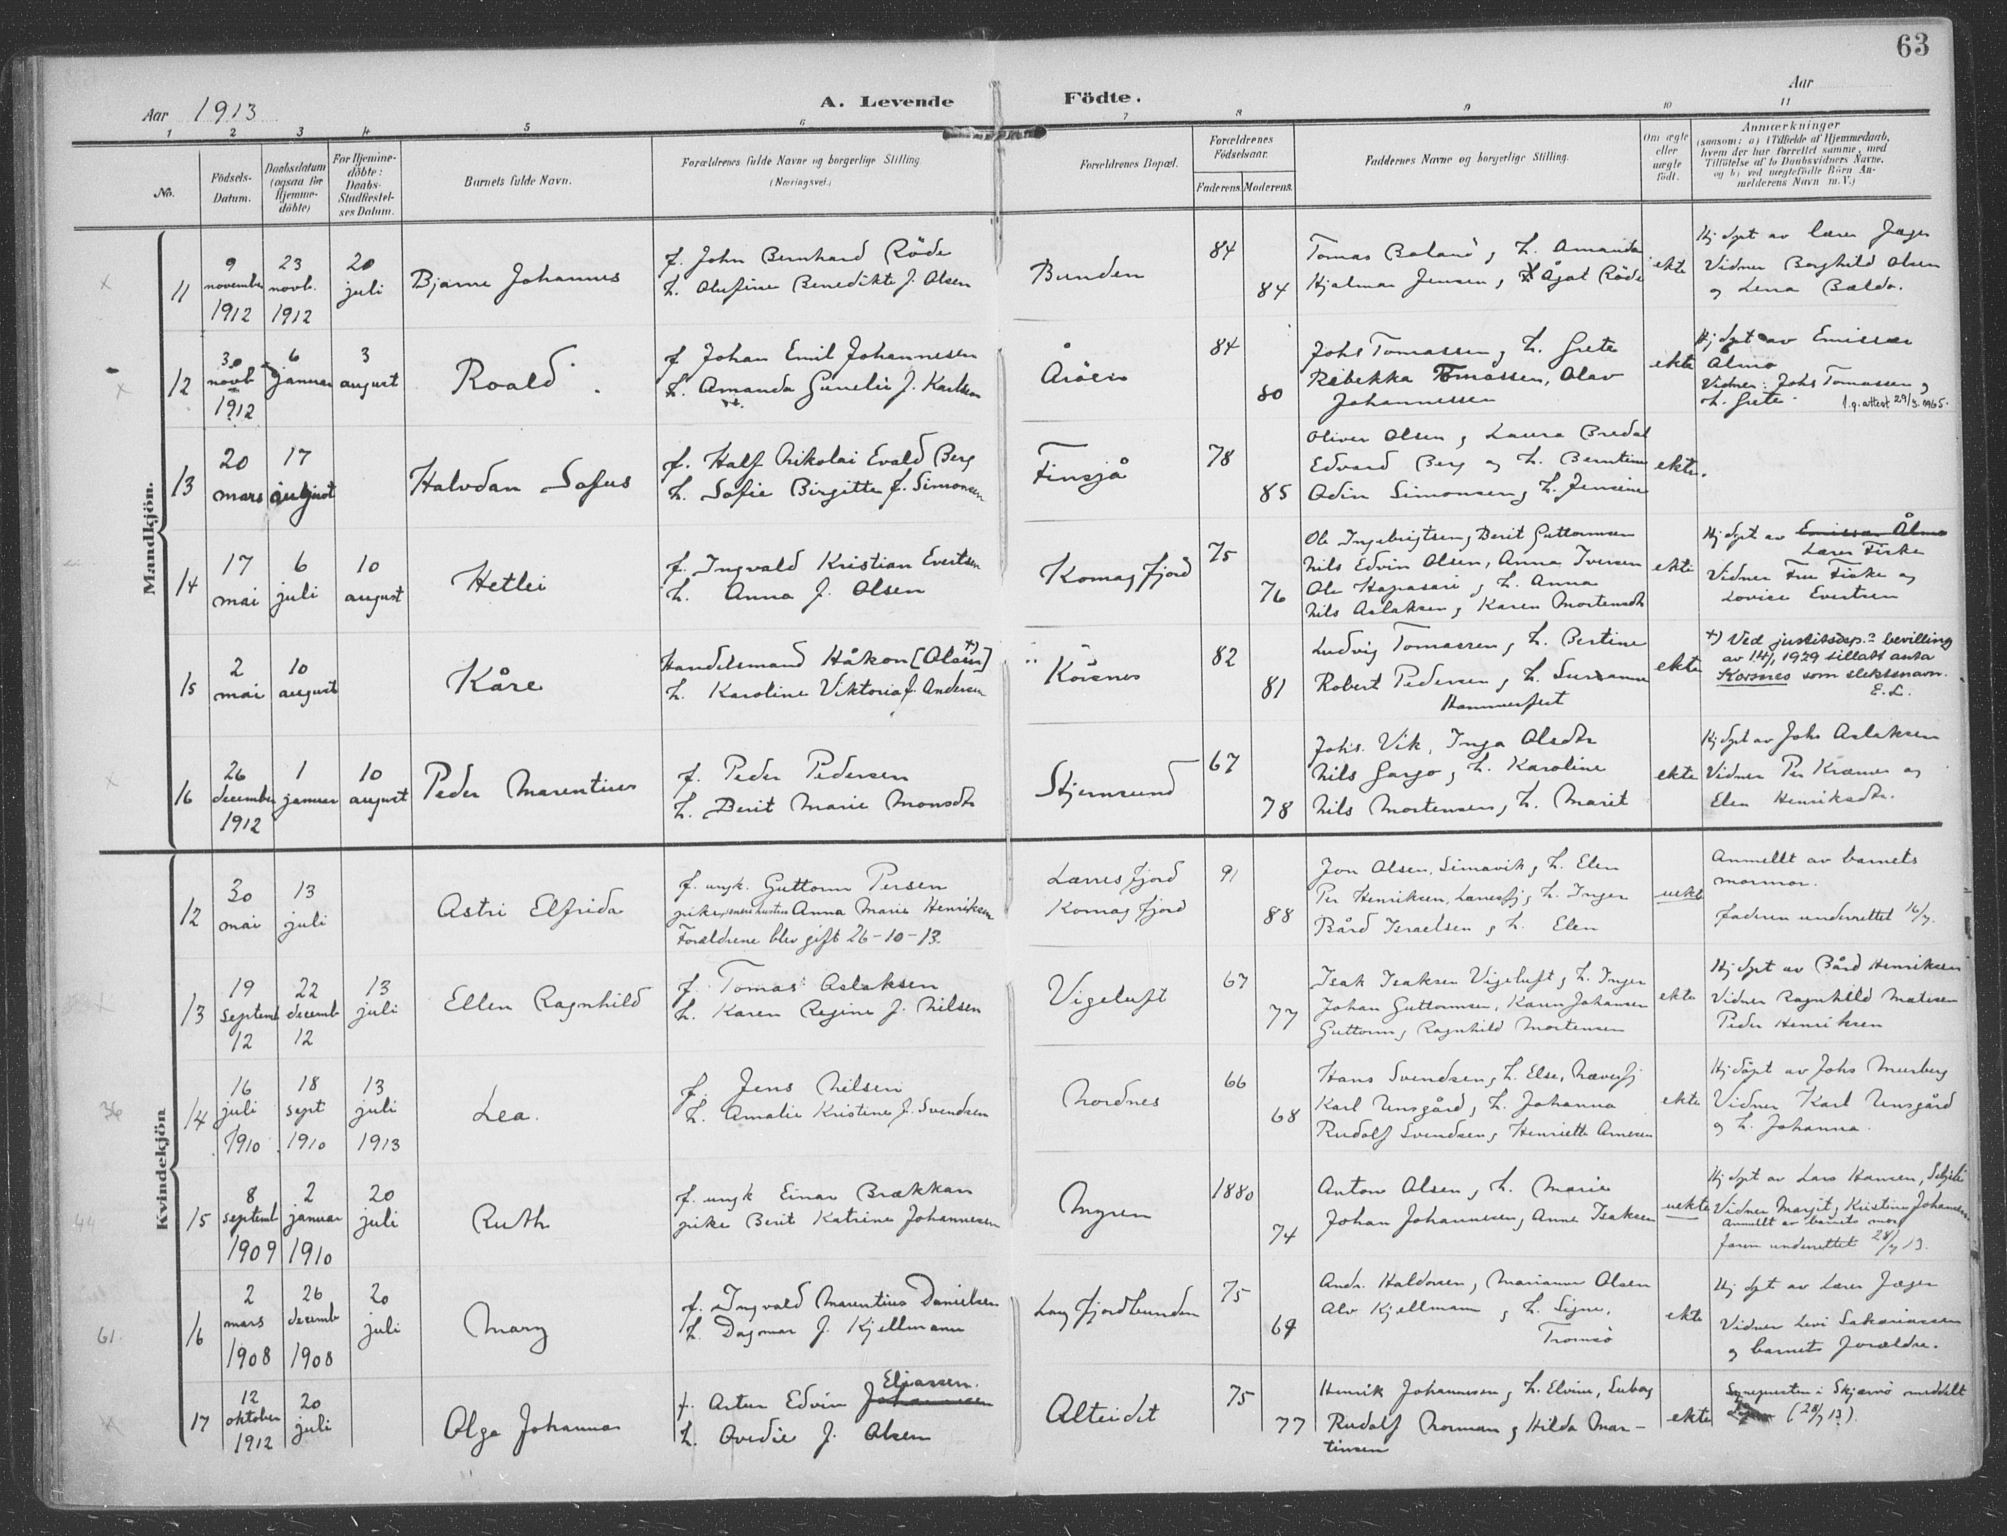 63
Aar 1913
A. Levende Födte.
Aar
1 2 3 4 5 6 7 8 9 10 11
No.
Födsels-Datum.
Daabsdatum (ogsaa for Hjemme-döbte)
For Hjemme-döbte: Daabs-Stadfæstel-ses Datum.
Barnets fulde Navn.
Forældrenes fulde Navne og borgerlige Stilling. (Næringsvei.)
Forældrenes Bopæl.
Forældrenes Födselsaar.
Faderens. Moderens.
Faddernes Navne og borgerlige Stilling.
Om ægte eller uægte födt.
Anmærkninger
(saasom: a) i Tilfælde af Hjemmedaab, hvem der har forrettet samme, med Tilföielse af to Daabsvidners Navne, og b) ved uægtefödte Börn An-melderens Navn m. V.)
Mandkjön.
11
9 november 1912
23 novb. 1912
20 juli
Bjarne Johannes
f. John Bernhard Röde
h. Olufine Benedikte f. Olsen
Bunden
84
84
Tomas Baland g h. Amanda
Hjalmar Jensen, g Ågot Röde
ekte
Hj dpt av lærer Jæger
Vidner Borghild Olsen
g Lena Baldo.
12
30 novb 1912
6 januar
3 august
Roald
f. Johan Emil Johannesen
h. Amanda Gunelie f. Karlsen
Åröen
84
80
Johs Tomassen g h. Grete
Rebekka Tomassen, Olav
Johannessen
ekte
Hj dpt av Emissær
Ålmo
Vidner: Johs Tomassen g
h. Grete. f.g. attest 29/3 1965.
13
20 mars
17 august
Halvdan Sofus
f. Half Nikolai Evald Berg
h. Sofie Birgitte f. Simonsen
Finsjå
78
85
Oliver Olsen g Laura Bredal
Edvard Berg og h. Berntine
Odin Simonsen g h. Jensine
ekte.
14
17 mai
6 juli
10 august
Hetlei
f. Ingvald Kristian Evertsen
h. Anna f. Olsen
Komagfjord
75
76
Ole Ingebrigtsen g Berit Guttormsen
Nils Edvin Olsen, Anna Iversen
Ole Hapasari g h. Anna
Nils Aslaksen g Karen Mortensdtr
ekte
Hj dpt av Emissær Ålmo
Lærer Fiske
Vidner Fru Fiske og
Lovise Evertsen
15
2 mai
10 august
Kåre
Handelsmand Håkon [Olsen] +)
h. Karoline Viktoria f. Andersen
Körsnes
82
81
Ludvig Tomassen g h. Bertine
Robert Pedersen g h. Susanne
Hammerfest
ekte
+) Ved justitsdep.s bevilling
av 14/1 1929 tillatt anta
Korsnes som slektsnavn.
E. L.
16
26 december 1912
1 januar
10 august
Peder Marentius
f. Peder Pedersen
h. Berit Marie Monsdtr
Stjernsund
67
78
Johs. Vik, Inga Olsdtr
Nils Gargo g h. Karoline
Nils Mortensen g h. Marit
ekte
Hj dpt av Johs Aslaksen
Vidner Per Kræmer og
Elen Henriksdtr.
Kvindekjön
12
30 mai
13 juli
Astri Elfrida
f. ungk. Guttorm Persen
pike, Anna Marie Henriksen
Forældrene blev gift 26-10-13.
Lærresfjord
Komagfjord
91
88
Jon Olsen, Simavik g h. Elen
Per Henriksen, Lærresfj g h. Inger
Bård Israelsen g h. Elen
uekte
Anmeldt av barnets
mormor.
faderen underrettet 16/7.
13
19 septemb 12
22 decemb 12
13 juli
Ellen Ragnhild
f. Tomas Aslaksen
h. Karen Regine f. Nilsen
Vigeluft
67
77
Isak Isaksen Vigeluft g h. Inger
Johan Guttormsen, Karen Johansen
Guttorm g Ragnhild Mortensen
ekte
Hj dpt av Bård Henriksen
Vidner Ragnhild Matisen
Peder Henriksen
36
14
16 juli 1910
18 sept 1910
13 juli 1913
Lea.
f. Jens Nilsen
h. Amalie Kristine f. Svendsen
Nordnes
66
68
Hans Svendsen g h. Else, Næverfj
Karl Unsgård g h. Johanna
Rudolf Svendsen g Henriette Arnesen
ekte
Hj döpt av Johs Murberg
Vidner Karl Unsgård
g h. Johanna.
44
15
8 septemb 1909
2 januar 1910
20 juli
Ruth
f. ungk Einar Brækkan
pike Berit Katrine Johannesen
Nyren
1880
74
Anton Olsen g h. Marie
Johan Johannesen g Anne Isaksen
uekte
Hj dpt av Lars Hansen,
Vidner Margit g Kristine Johansen
Anmeldt av barnets mor
faren underrettet 28/7 13.
61.
16
2 mars 1908
26 decemb 1908
20 juli
Mary
f. Ingvald Marentius Danielsen
h. Dagmar f. Kjellmann
Langfjordbunden
75
69
Andr. Haldorsen g Marianne Olsen
Alv Kjellmann g h. Signe,
Tromsö
ekte
Hj dpt av Lærer Jæger
Vidner Levi Sakariassen
g barnets forældre.
17
12 oktober 1912
20 juli
Olga Johanna
Eliassen.
f. Artur Edvin Johannessen
h. Ovedie f. Olsen
Alteidet
75
77
Henrik Johannessen g h. Elvine,
Rudolf Norman g Hilda Mar-
tinsen
ekte
Sognepresten i Skjærvö meddelt
(28/7 13).